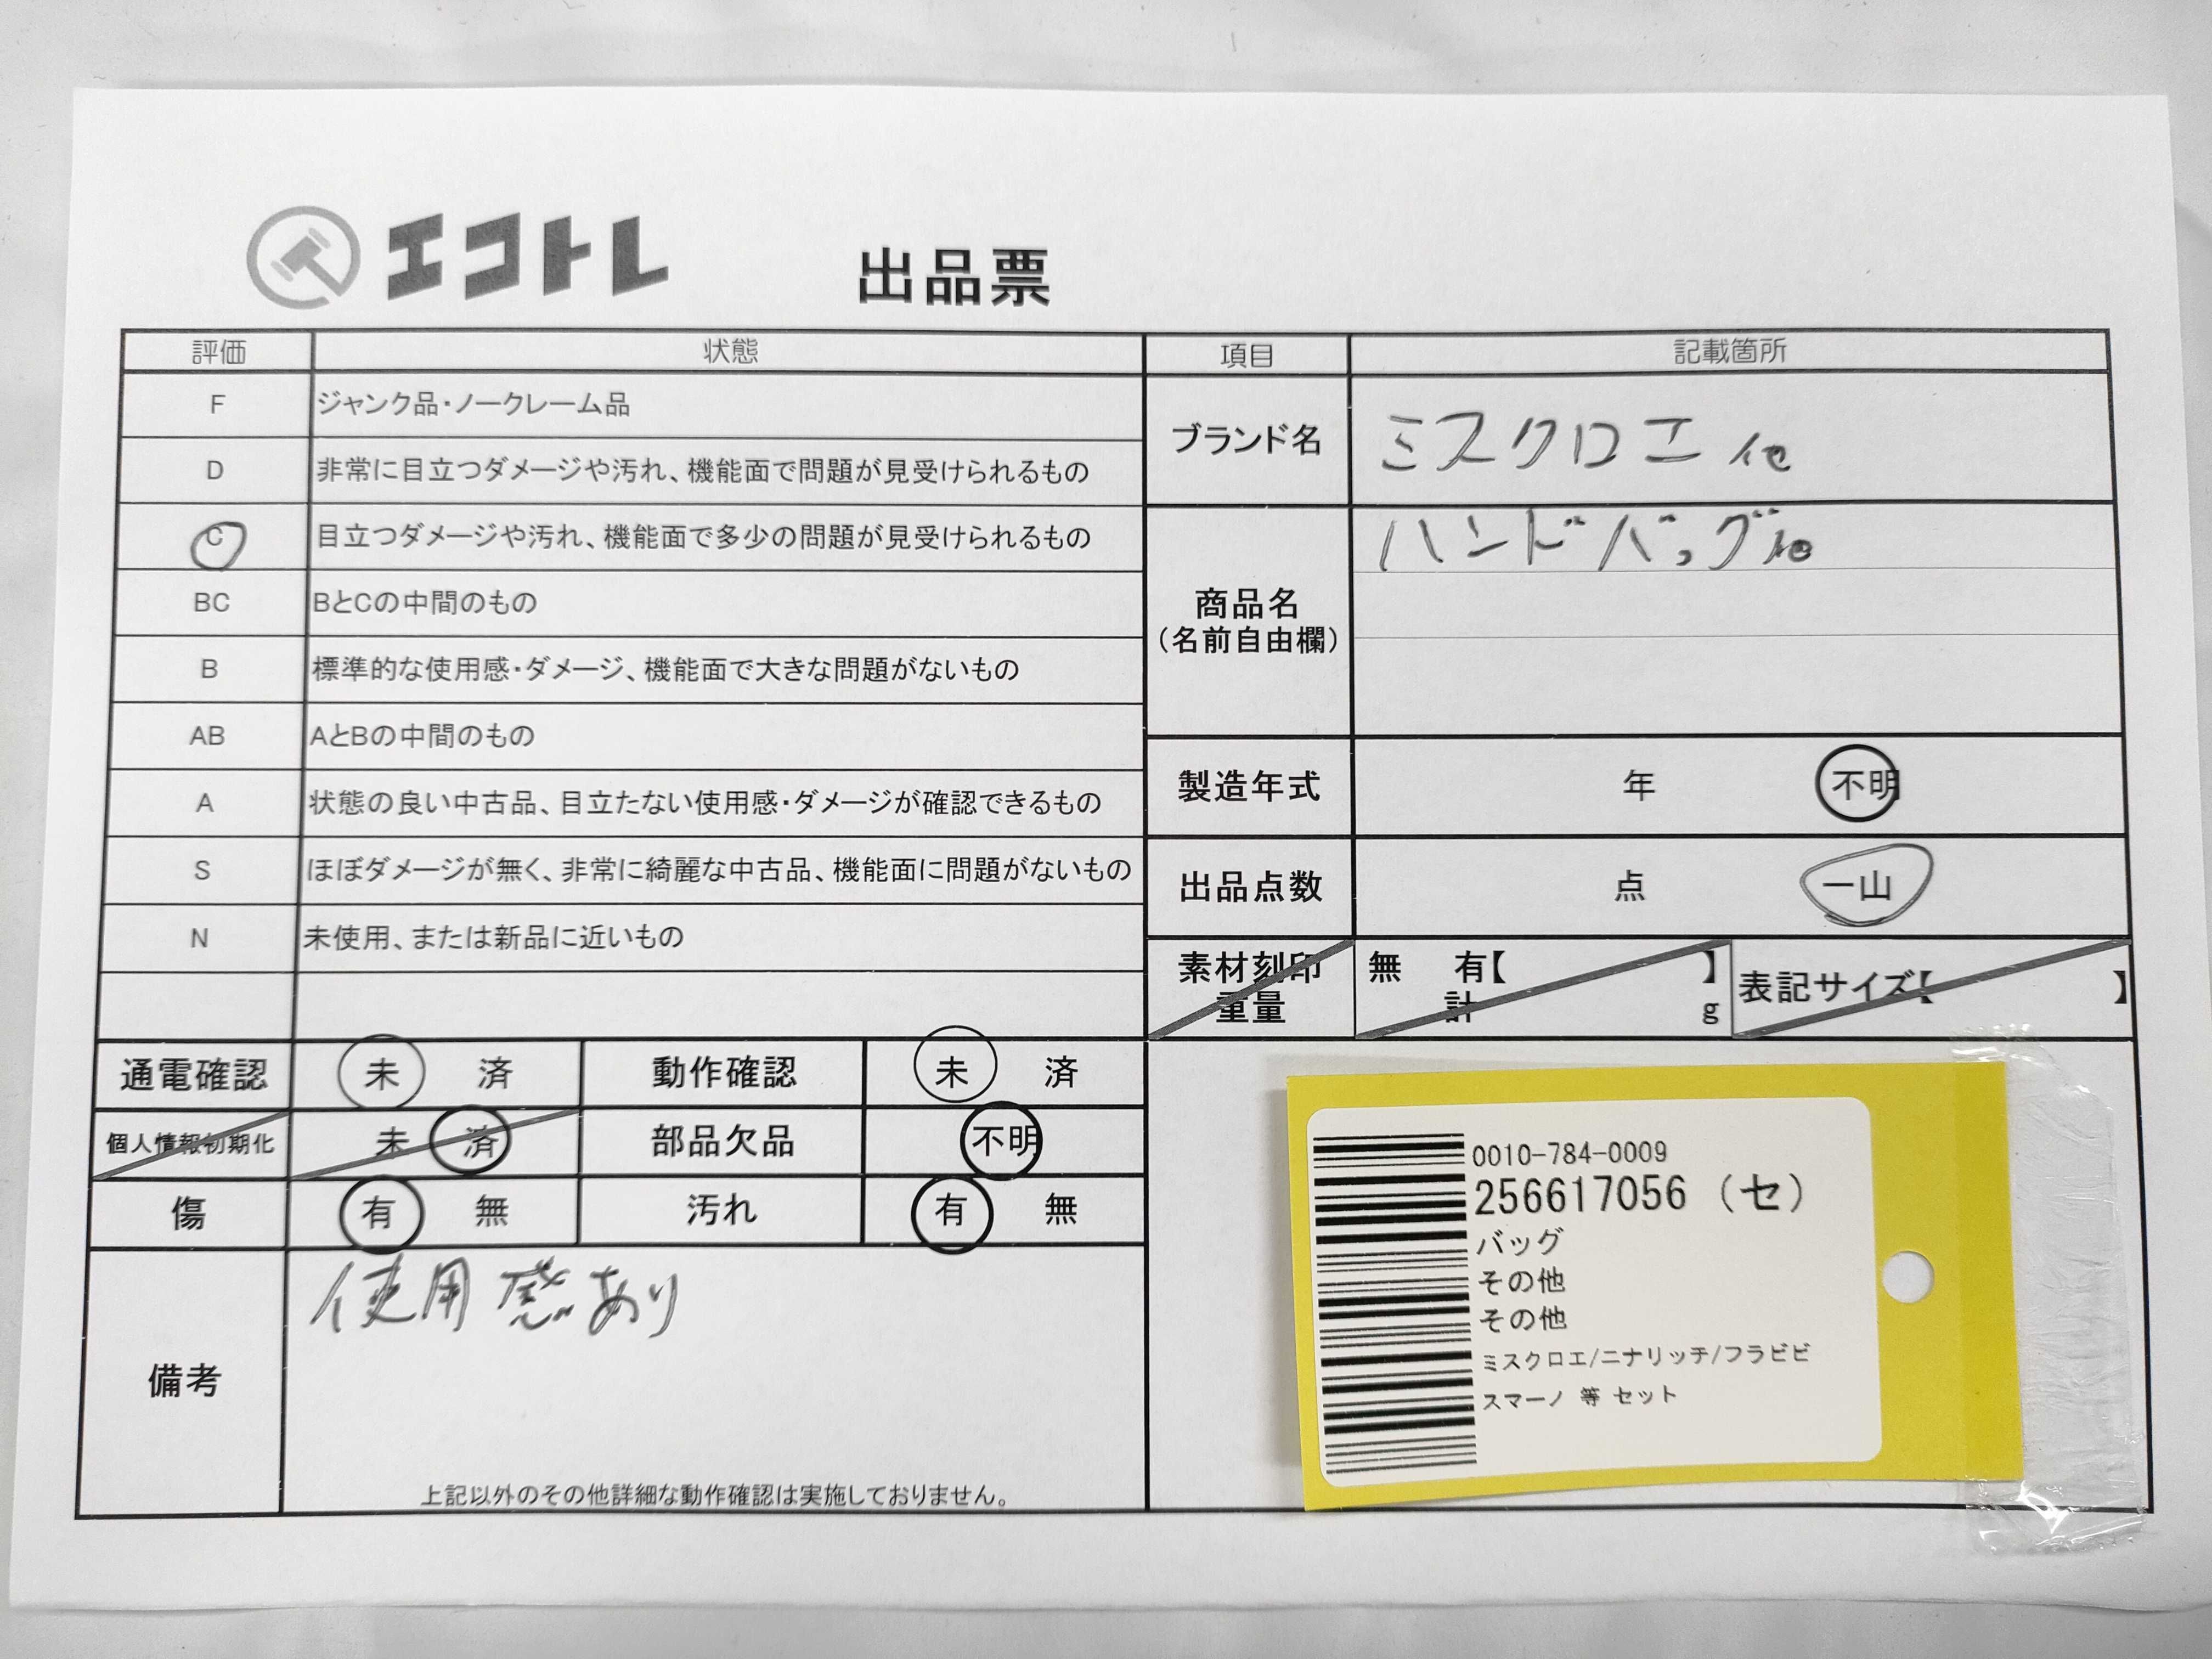 エコトレ
出品票
評価 状態
F ジャンク品・ノークレーム品
D 非常に目立つダメージや汚れ、機能面で問題が見受けられるもの
C 目立つダメージや汚れ、機能面で多少の問題が見受けられるもの
BC BとCの中間のもの
B 標準的な使用感・ダメージ、機能面で大きな問題がないもの
AB AとBの中間のもの
A 状態の良い中古品、目立たない使用感・ダメージが確認できるもの
S ほぼダメージが無く、非常に綺麗な中古品、機能面に問題がないもの
N 未使用、または新品に近いもの
項目 記載箇所
ブランド名 ミスクロエ 他
商品名 ハンドバッグ他
（名前自由欄）
製造年式 年 不明
出品点数 点 一山
素材刻印 無 有【 】 表記サイズ【 】
重量 計 g
通電確認 未 済 動作確認 未 済
個人情報初期化 未 済 部品欠品 不明
傷 有 無 汚れ 有 無
備考 使用感あり
上記以外のその他詳細な動作確認は実施しておりません。
0010-784-0009
256617056（セ）
バッグ
その他
その他
ミスクロエ/ニナリッチ/フラビビ
スマーノ 等 セット